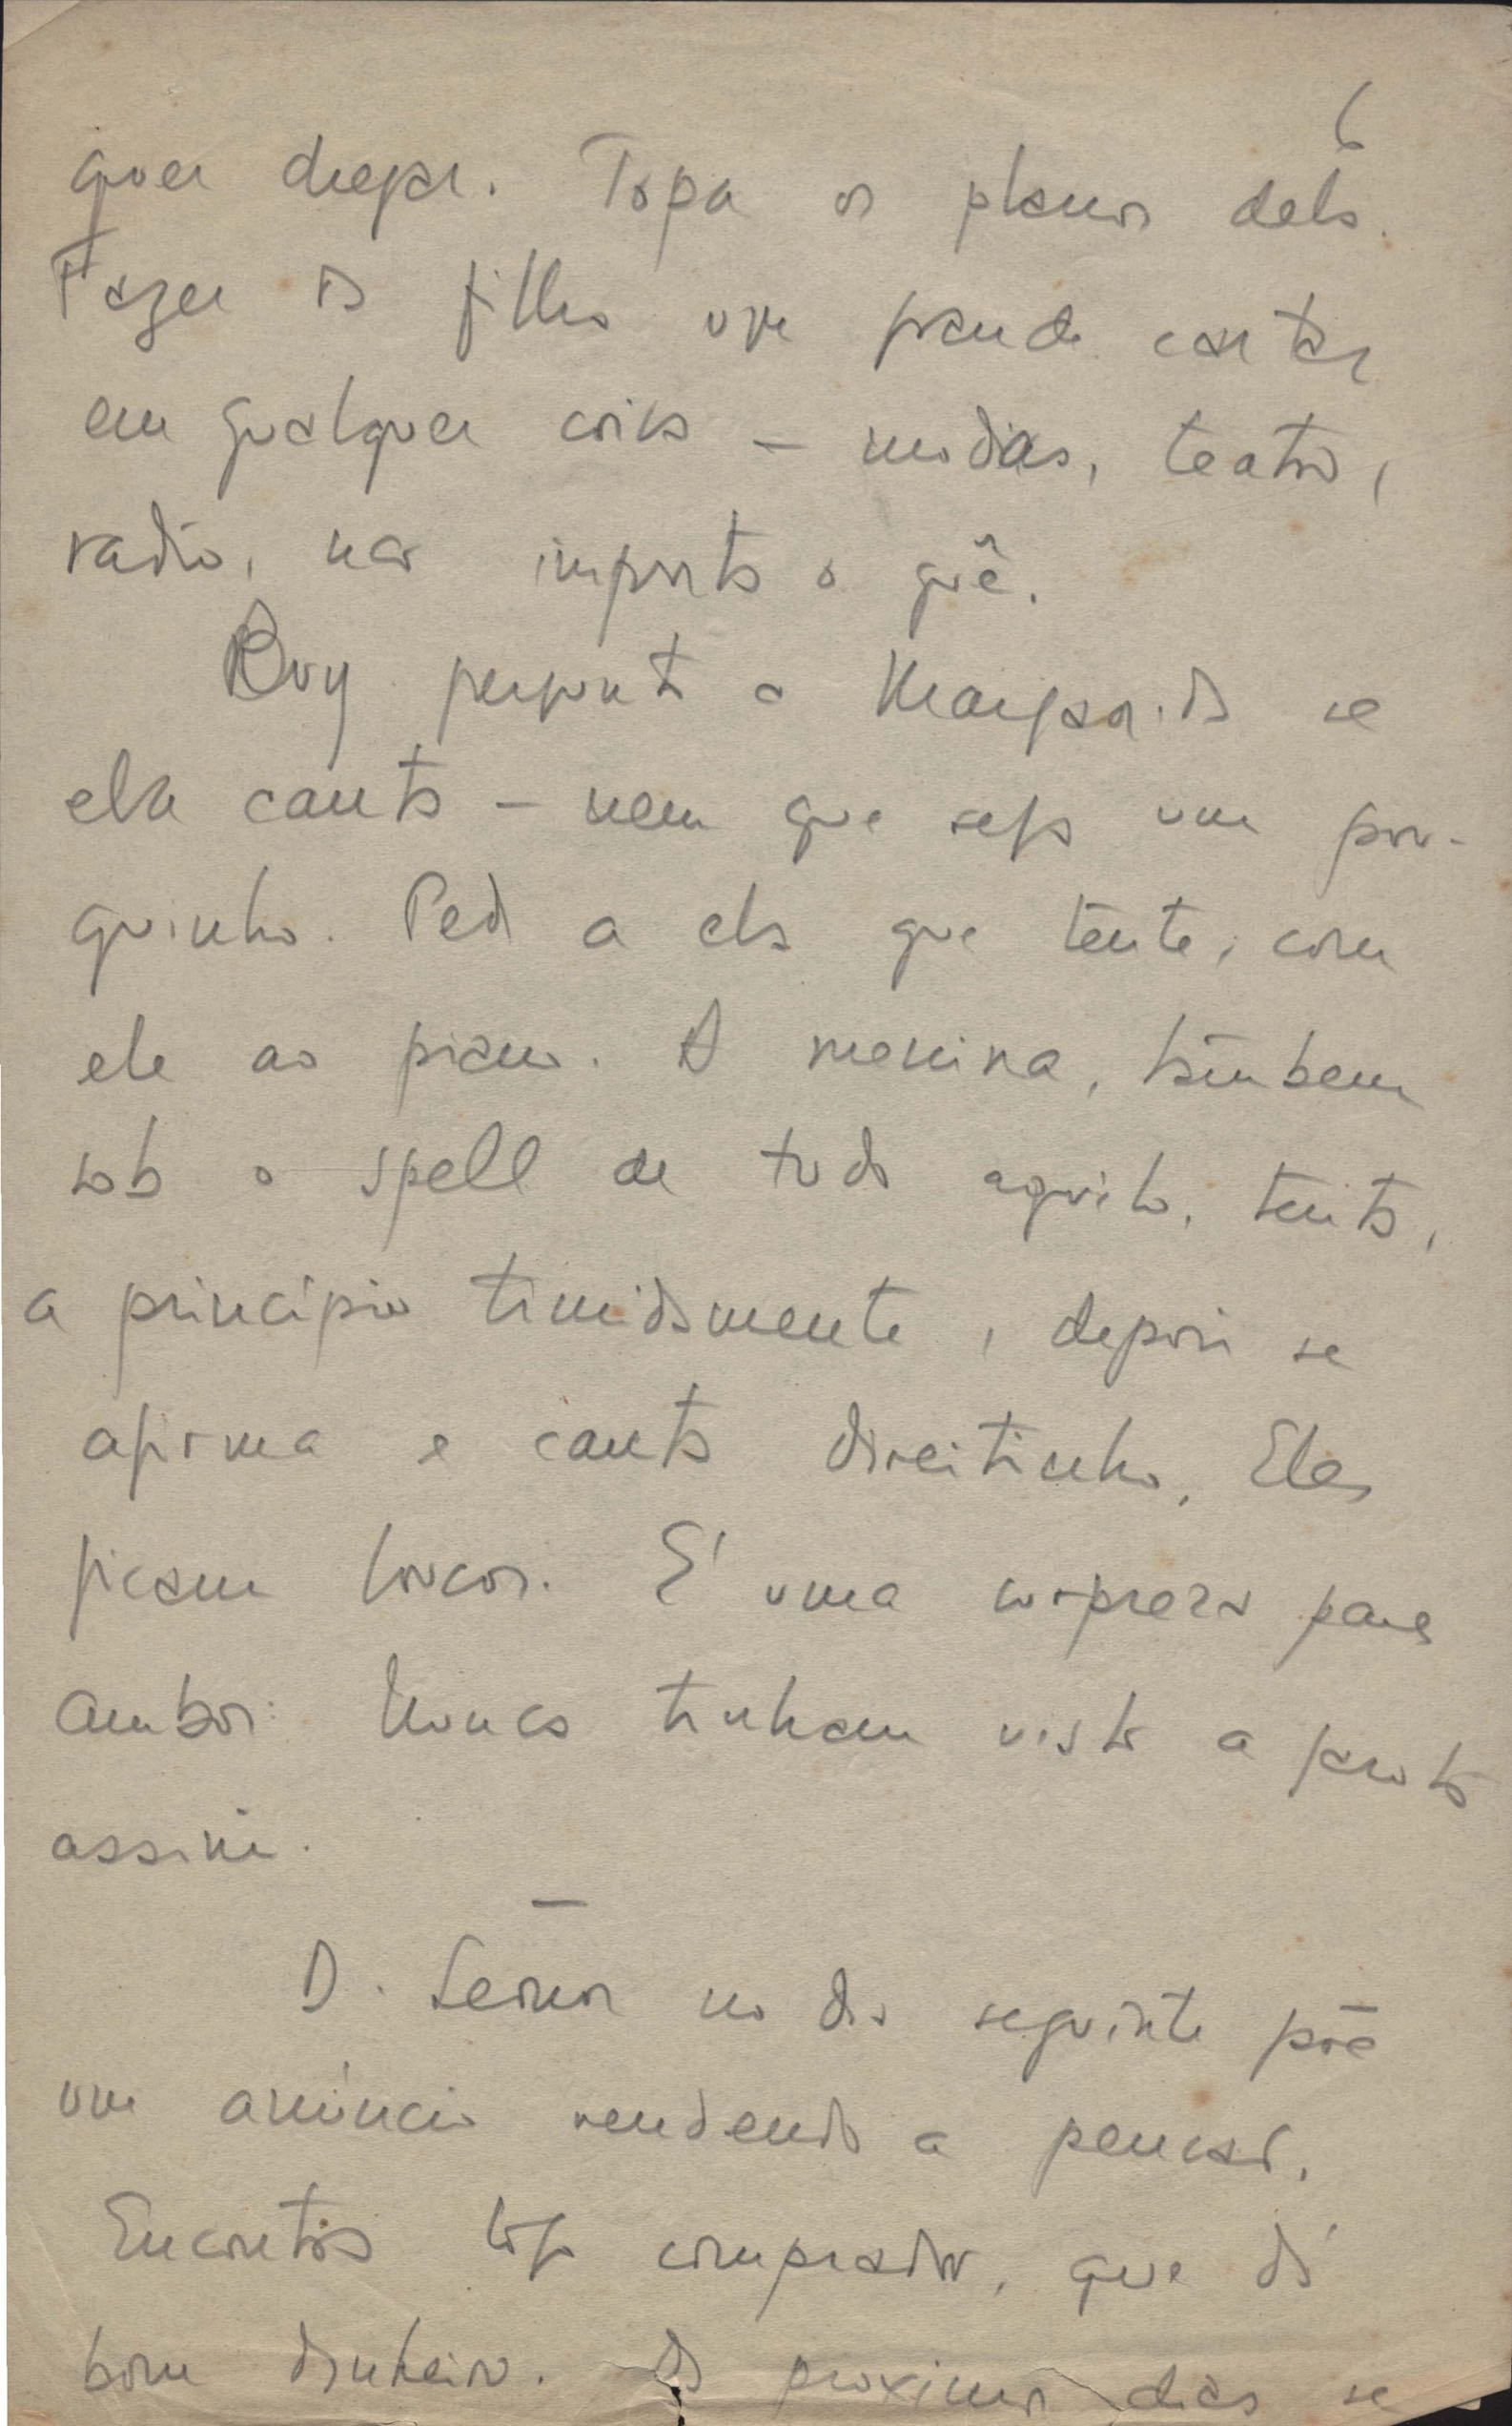 6
quer chegar. Topa os planos dela.
Fazer da filha um grande cartaz
em qualquer coisa – modas, teatro,
radio, não importa o quê.
Ruy pergunta a Margarida se
ela canta – nem que seja um pou-
quinho. Pede a ela que tente, com
ele ao piano. A menina, também
sob o spell de tudo aquilo, tenta,
a princípio timidamente, depois se
afirma e canta direitinho. Eles
ficam loucos. E' uma surpreza para
ambos: Nunca tinham visto a garota
assim.
—
D. Leonor no dia seguinte põe
um anúncio vendendo a pensão.
Encontra logo comprador, que dá
bom dinheiro. Os proximos dias se